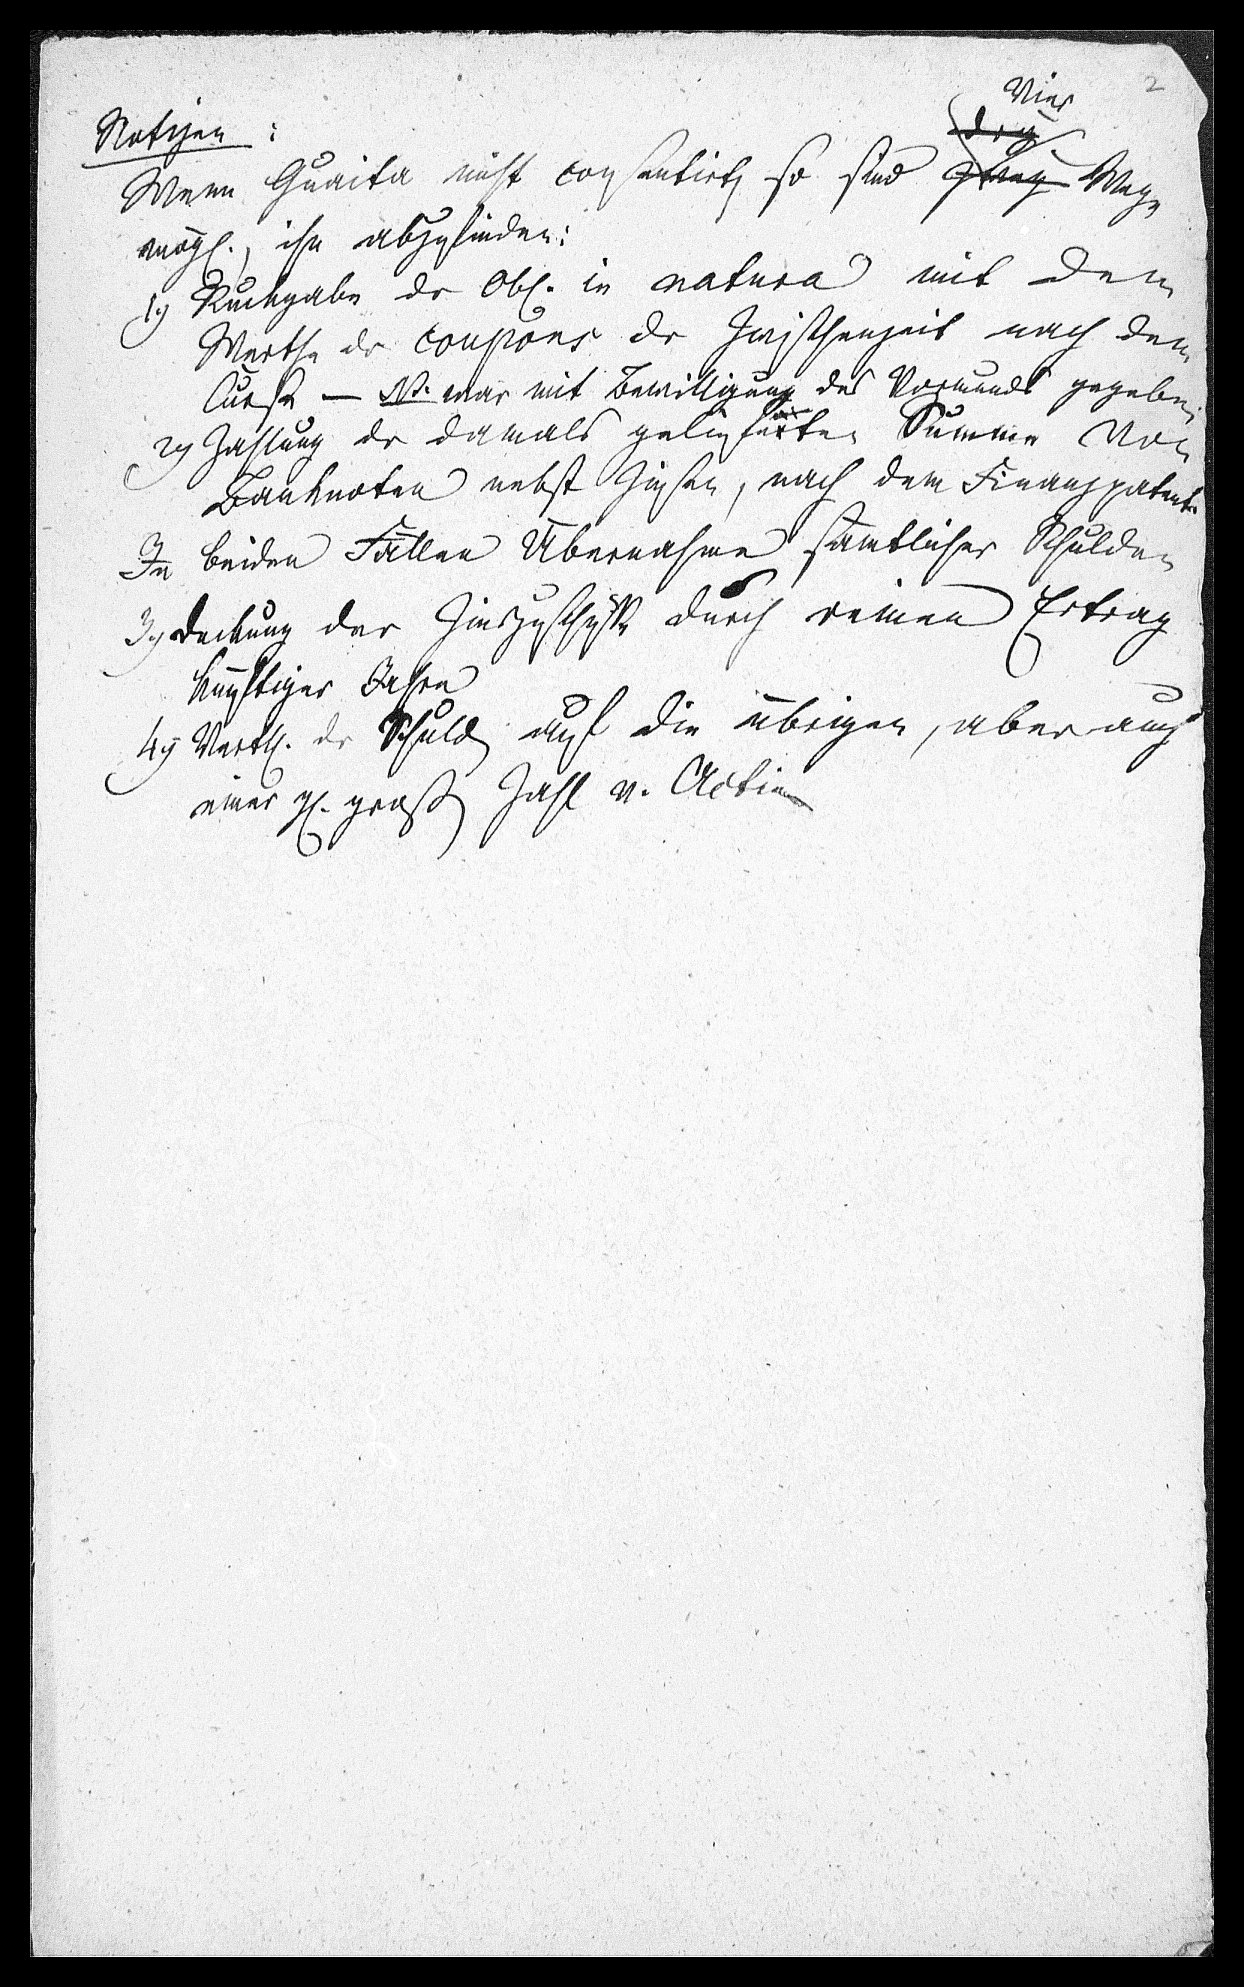 2
Notizen:
Vier
drey
Wenn Guaita nicht consentirt, so sind zwey Wege
mögl., ihn abzufinden:
1) Rückgabe dr Obl. in natura mit dem
Werthe dr coupons dr Zwischenzeit nach dem
Curse — NB. war mit Bewilligung des Vormunds gegeben.
2) Zahlung dr damals geliehenen Summe von
Banknoten nebst Zinsen, nach dem Finanzpatent.
In beiden Fällen Übernahme sämtlicher Schulden
3) Deckung der durch reinen Ertrag
künftiger Jahre
4) Verth. dr Schuld auf die übrigen, aber auch
einer gl. großen Zahl v. Actien